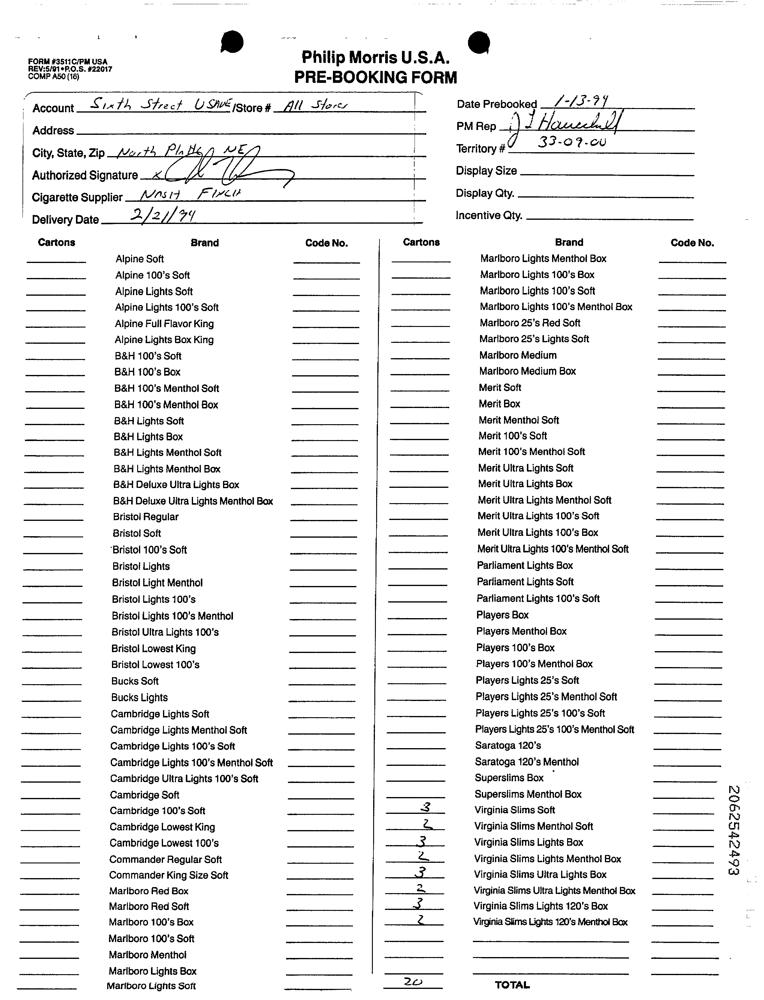 FORM #3511C/PM USA
REV:5/91•P.O.S. #22017
COMP A50 (16)
Philip Morris U.S.A.
PRE-BOOKING FORM
Account Sixth Street USAVE/Store # All Stores
Address
City, State, Zip North Platte, NE
Authorized Signature x
Cigarette Supplier NASH FINCH
Delivery Date 2/21/94
Date Prebooked 1-13-94
PM Rep
Territory # 33-09-00
Display Size
Display Qty.
Incentive Qty.
Cartons Brand Code No.
Alpine Soft
Alpine 100's Soft
Alpine Lights Soft
Alpine Lights 100's Soft
Alpine Full Flavor King
Alpine Lights Box King
B&H 100's Soft
B&H 100's Box
B&H 100's Menthol Soft
B&H 100's Menthol Box
B&H Lights Soft
B&H Lights Box
B&H Lights Menthol Soft
B&H Lights Menthol Box
B&H Deluxe Ultra Lights Box
B&H Deluxe Ultra Lights Menthol Box
Bristol Regular
Bristol Soft
Bristol 100's Soft
Bristol Lights
Bristol Light Menthol
Bristol Lights 100's
Bristol Lights 100's Menthol
Bristol Ultra Lights 100's
Bristol Lowest King
Bristol Lowest 100's
Bucks Soft
Bucks Lights
Cambridge Lights Soft
Cambridge Lights Menthol Soft
Cambridge Lights 100's Soft
Cambridge Lights 100's Menthol Soft
Cambridge Ultra Lights 100's Soft
Cambridge Soft
Cambridge 100's Soft
Cambridge Lowest King
Cambridge Lowest 100's
Commander Regular Soft
Commander King Size Soft
Marlboro Red Box
Marlboro Red Soft
Marlboro 100's Box
Marlboro 100's Soft
Marlboro Menthol
Marlboro Lights Box
Marlboro Lights Soft
Cartons Brand Code No.
Marlboro Lights Menthol Box
Marlboro Lights 100's Box
Marlboro Lights 100's Soft
Marlboro Lights 100's Menthol Box
Marlboro 25's Red Soft
Marlboro 25's Lights Soft
Marlboro Medium
Marlboro Medium Box
Merit Soft
Merit Box
Merit Menthol Soft
Merit 100's Soft
Merit 100's Menthol Soft
Merit Ultra Lights Soft
Merit Ultra Lights Box
Merit Ultra Lights Menthol Soft
Merit Ultra Lights 100's Soft
Merit Ultra Lights 100's Box
Merit Ultra Lights 100's Menthol Soft
Parliament Lights Box
Parliament Lights Soft
Parliament Lights 100's Soft
Players Box
Players Menthol Box
Players 100's Box
Players 100's Menthol Box
Players Lights 25's Soft
Players Lights 25's Menthol Soft
Players Lights 25's 100's Soft
Players Lights 25's 100's Menthol Soft
Saratoga 120's
Saratoga 120's Menthol
Superslims Box
Superslims Menthol Box
3 Virginia Slims Soft
2 Virginia Slims Menthol Soft
3 Virginia Slims Lights Box
2 Virginia Slims Lights Menthol Box
3 Virginia Slims Ultra Lights Box
2 Virginia Slims Ultra Lights Menthol Box
3 Virginia Slims Lights 120's Box
2 Virginia Slims Lights 120's Menthol Box
20 TOTAL
2062542493